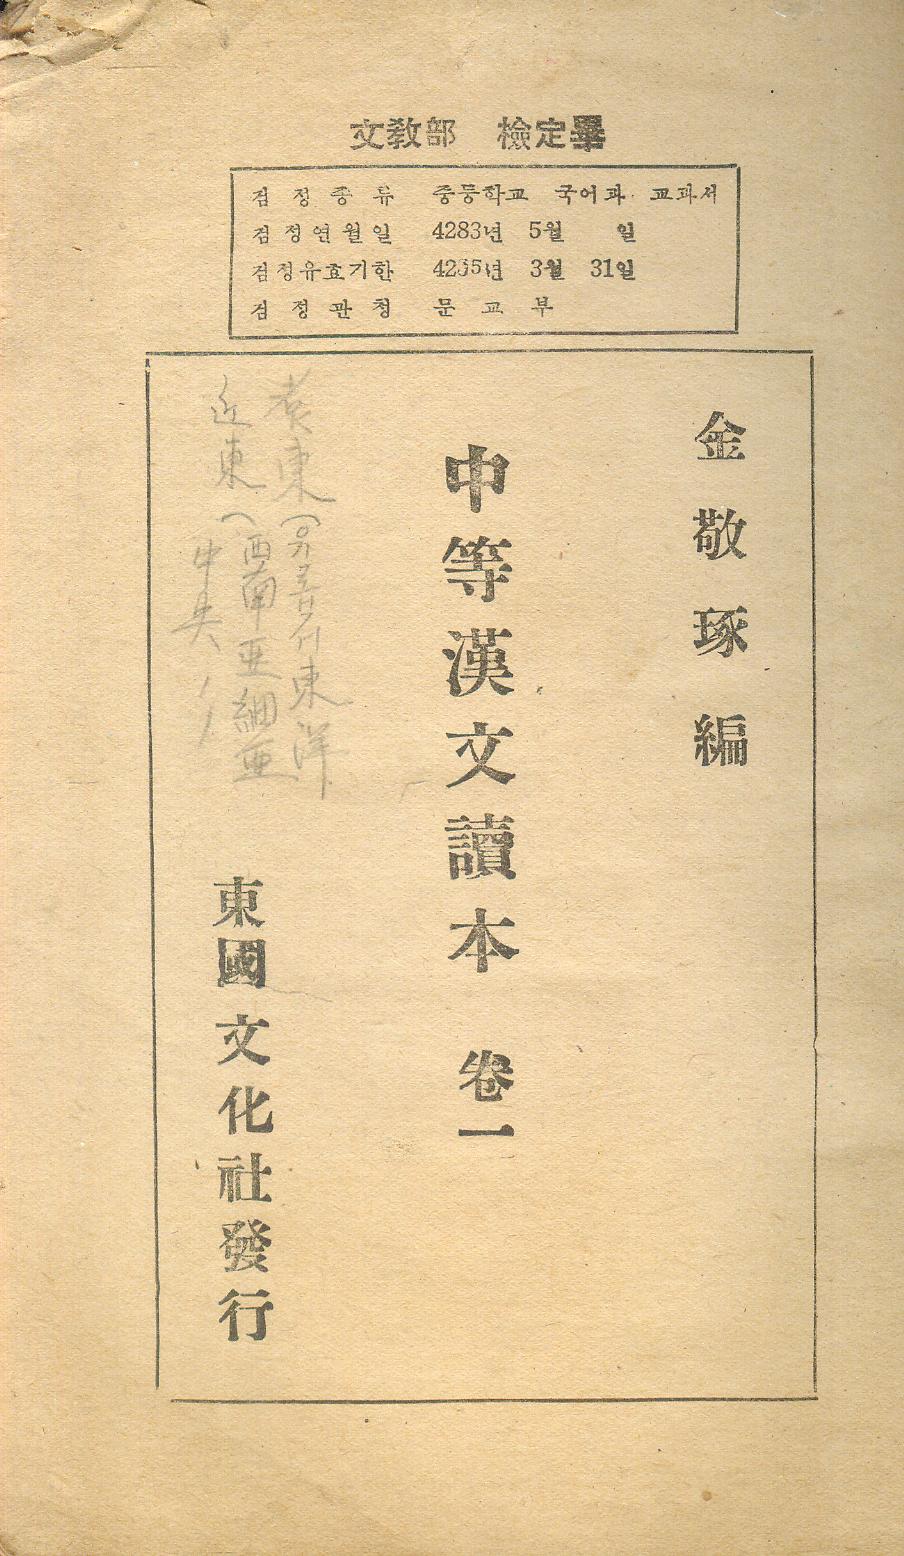 文敎部 檢定畢
검정종류 중등학교 국어과 교과서
검정연월일 4283년 5월 일
검정유효기한 42 5년 3월 31일
검정관청 문교부
金敬琢編
中等漢文讀本 卷一
東洋
近東(西南亞細亞
中央
東國文化社發行